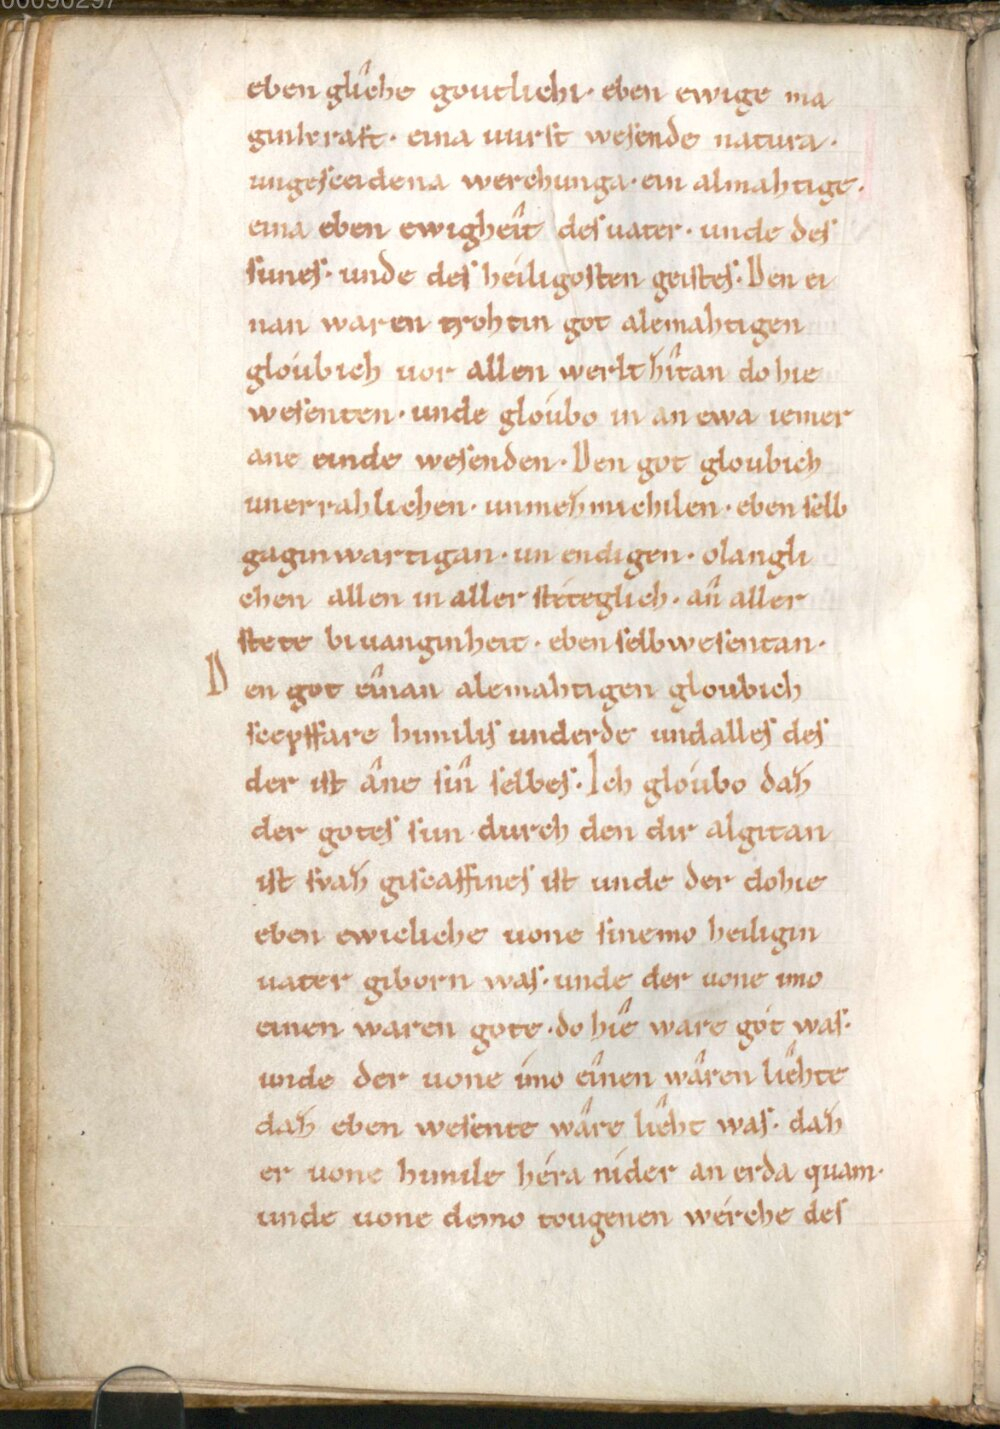 00090297
eben glîche goutlichi· eben ewige ma
ginkraft· eina uurst wesende natura·
ungesceidena werchunga· ein almahtige·
eina eben ewigheît des uater· unde des
sunes· unde des heiligosten geistes· Den ei
nan waren trohtin got alemahtigen
gloúbich uor allen werltzîtan do hie
wesenten· unde gloúbo in an ewa iemer
ane einde wesenden· Den got gloubich
unerrahlichen· unmezmichilen· eben selb
gaginwartigan· un endigen· olangli
chen allen in aller steteglich· aû aller
stete biuanginheit· eben selbwesentan·
Den got eînan alemahtigen gloubich
scepffare himilis underde undalles des
der ist âne sîn selbes· Ich gloúbo daz
der gotes sun durch den dir algitan
ist svaz giscaffines ist unde der dohie
eben ewicliche uone sinemo heiligin
uater giborn was· unde der uone imo
einen waren gote· do hiê ware gót was·
unde der uone ímo eînen wâren liêhte
daz eben wesente wâre liêht was· daz
er uone himile héra níder an erda quam·
unde uone demo tougenen wérche des